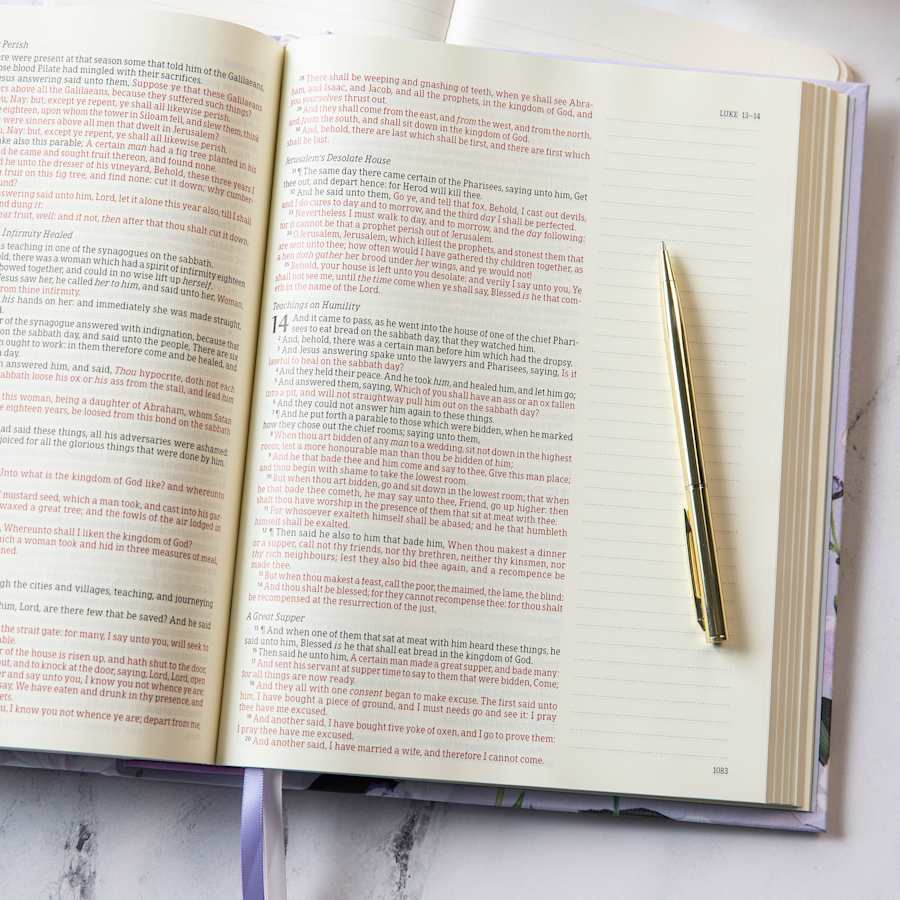 Perish
ere were present at that season some that told him of the Galilaeans,
ose blood Pilate had mingled with their sacrifices.
esus answering said unto them, Suppose ye that these Galilaeans
ers above all the Galilaeans, because they suffered such things?
u, Nay: but, except ye repent, ye shall all likewise perish.
eighteen, upon whom the tower in Siloam fell, and slew them, think
were sinners above all men that dwelt in Jerusalem?
u, Nay: but, except ye repent, ye shall all likewise perish.
ake also this parable; A certain man had a fig tree planted in his
d he came and sought fruit thereon, and found none.
d he unto the dresser of his vineyard, Behold, these three years I
fruit on this fig tree, and find none: cut it down; why cumber-
und?
nswering said unto him, Lord, let it alone this year also, till I shall
nd dung it:
ear fruit, well: and if not, then after that thou shalt cut it down.
Infirmity Healed
s teaching in one of the synagogues on the sabbath.
old, there was a woman which had a spirit of infirmity eighteen
bowed together, and could in no wise lift up herself.
Jesus saw her, he called her to him, and said unto her, Woman,
rom thine infirmity.
his hands on her: and immediately she was made straight,
d.
r of the synagogue answered with indignation, because that
on the sabbath day, and said unto the people, There are six
n ought to work: in them therefore come and be healed, and
day.
n answered him, and said, Thou hypocrite, doth not each
abbath loose his ox or his ass from the stall, and lead him
this woman, being a daughter of Abraham, whom Satan
e eighteen years, be loosed from this bond on the sabbath
ad said these things, all his adversaries were ashamed:
joiced for all the glorious things that were done by him.
Unto what is the kingdom of God like? and whereunto
f mustard seed, which a man took, and cast into his gar-
waxed a great tree; and the fowls of the air lodged in
, Whereunto shall I liken the kingdom of God?
hich a woman took and hid in three measures of meal,
ned.
gh the cities and villages, teaching, and journeying
him, Lord, are there few that be saved? And he said
the strait gate: for many, I say unto you, will seek to
able.
r of the house is risen up, and hath shut to the door,
out, and to knock at the door, saying, Lord, Lord, open
er and say unto you, I know you not whence ye are:
say, We have eaten and drunk in thy presence, and
ets.
u, I know you not whence ye are; depart from me,
LUKE 13–14
28 There shall be weeping and gnashing of teeth, when ye shall see Abra-
ham, and Isaac, and Jacob, and all the prophets, in the kingdom of God, and
you yourselves thrust out.
29 And they shall come from the east, and from the west, and from the north,
and from the south, and shall sit down in the kingdom of God.
30 And, behold, there are last which shall be first, and there are first which
shall be last.
Jerusalem's Desolate House
31 ¶ The same day there came certain of the Pharisees, saying unto him, Get
thee out, and depart hence: for Herod will kill thee.
32 And he said unto them, Go ye, and tell that fox, Behold, I cast out devils,
and I do cures to day and to morrow, and the third day I shall be perfected.
33 Nevertheless I must walk to day, and to morrow, and the day following:
for it cannot be that a prophet perish out of Jerusalem.
34 O Jerusalem, Jerusalem, which killest the prophets, and stonest them that
are sent unto thee; how often would I have gathered thy children together, as
a hen doth gather her brood under her wings, and ye would not!
35 Behold, your house is left unto you desolate: and verily I say unto you, Ye
shall not see me, until the time come when ye shall say, Blessed is he that com-
eth in the name of the Lord.
Teachings on Humility
14 And it came to pass, as he went into the house of one of the chief Phari-
sees to eat bread on the sabbath day, that they watched him.
2 And, behold, there was a certain man before him which had the dropsy.
3 And Jesus answering spake unto the lawyers and Pharisees, saying, Is it
lawful to heal on the sabbath day?
4 And they held their peace. And he took him, and healed him, and let him go;
5 And answered them, saying, Which of you shall have an ass or an ox fallen
into a pit, and will not straightway pull him out on the sabbath day?
6 And they could not answer him again to these things.
7 ¶ And he put forth a parable to those which were bidden, when he marked
how they chose out the chief rooms; saying unto them,
8 When thou art bidden of any man to a wedding, sit not down in the highest
room; lest a more honourable man than thou be bidden of him;
9 And he that bade thee and him come and say to thee, Give this man place;
and thou begin with shame to take the lowest room.
10 But when thou art bidden, go and sit down in the lowest room; that when
he that bade thee cometh, he may say unto thee, Friend, go up higher: then
shalt thou have worship in the presence of them that sit at meat with thee.
11 For whosoever exalteth himself shall be abased; and he that humbleth
himself shall be exalted.
12 ¶ Then said he also to him that bade him, When thou makest a dinner
or a supper, call not thy friends, nor thy brethren, neither thy kinsmen, nor
thy rich neighbours; lest they also bid thee again, and a recompence be
made thee.
13 But when thou makest a feast, call the poor, the maimed, the lame, the blind:
14 And thou shalt be blessed; for they cannot recompense thee: for thou shalt
be recompensed at the resurrection of the just.
A Great Supper
15 ¶ And when one of them that sat at meat with him heard these things, he
said unto him, Blessed is he that shall eat bread in the kingdom of God.
16 Then said he unto him, A certain man made a great supper, and bade many:
17 And sent his servant at supper time to say to them that were bidden, Come;
for all things are now ready.
18 And they all with one consent began to make excuse. The first said unto
him, I have bought a piece of ground, and I must needs go and see it: I pray
thee have me excused.
19 And another said, I have bought five yoke of oxen, and I go to prove them:
I pray thee have me excused.
20 And another said, I have married a wife, and therefore I cannot come.
1083